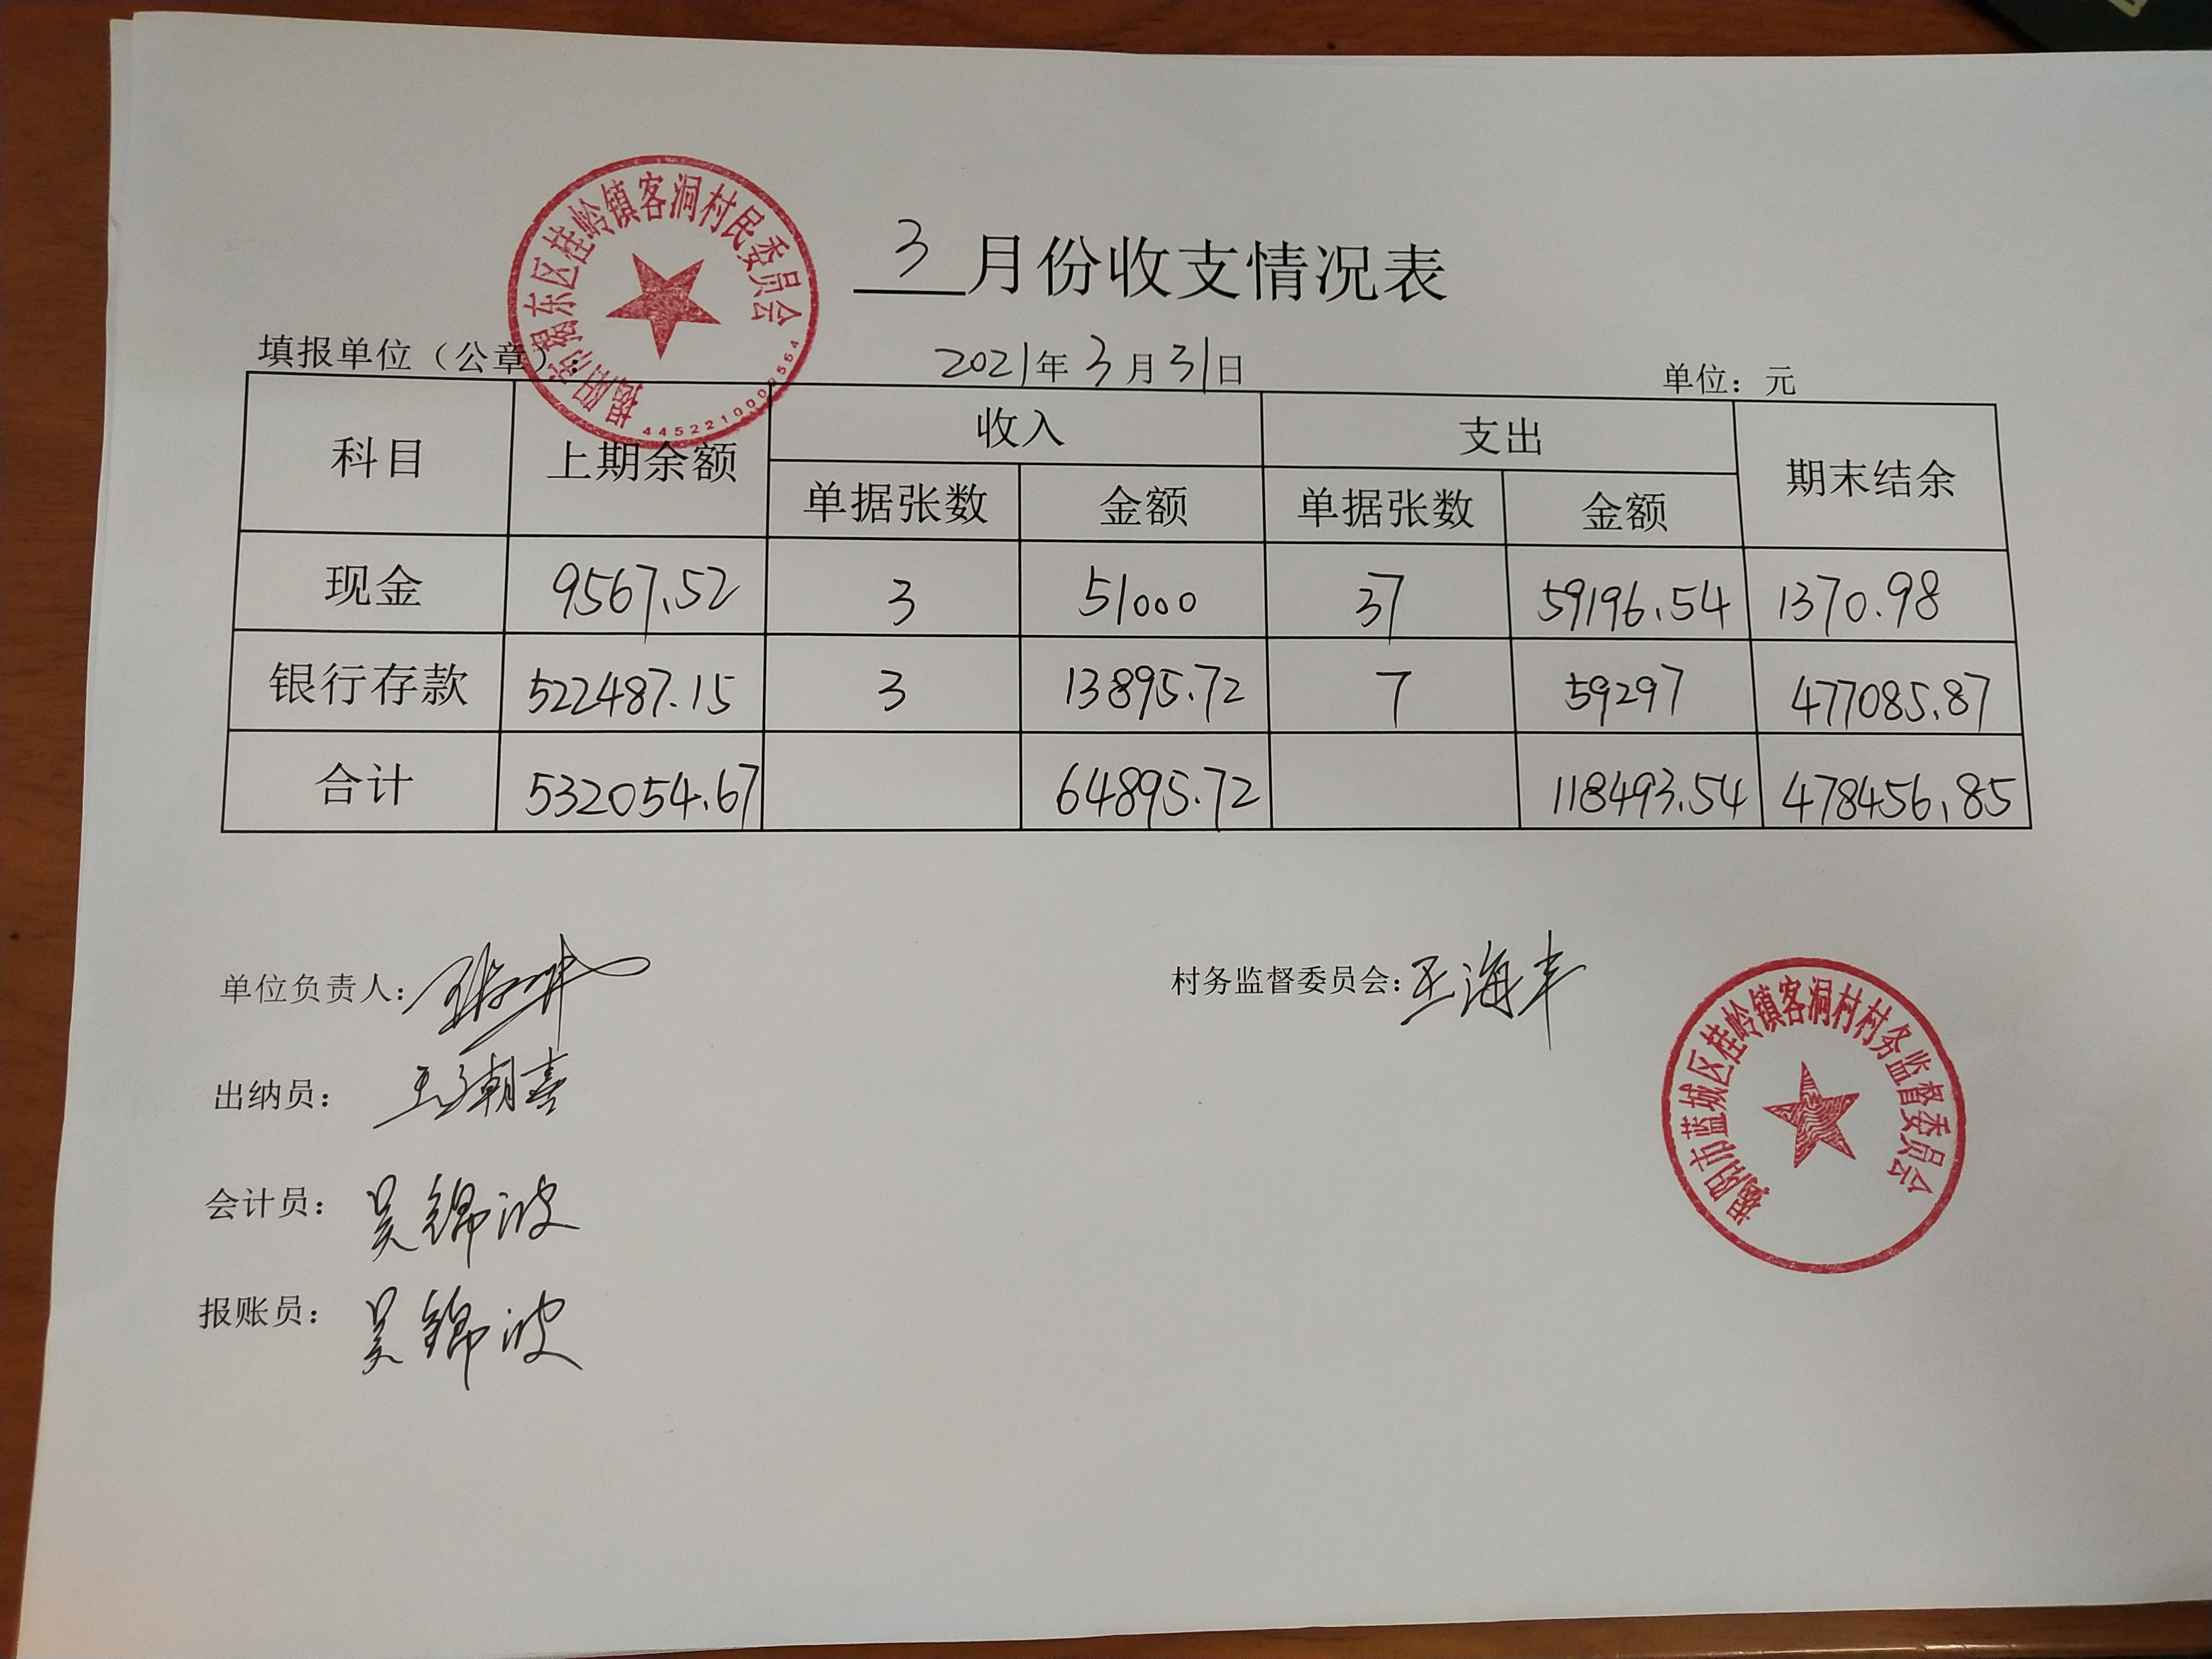 3月份收支情况表
揭阳市揭东区桂岭镇客洞村民委员会
填报单位（公章）： 2021年3月31日 单位：元
科目 上期余额 收入 支出 期末结余
单据张数 金额 单据张数 金额
现金 9567.52 3 51000 37 59196.54 1370.98
银行存款 522487.15 3 13895.72 7 59297 477085.87
合计 532054.67 64895.72 118493.54 478456.85
单位负责人： 村务监督委员会：王海丰
出纳员：王潮喜
会计员：吴锦波
报账员：吴锦波
揭阳市蓝城区桂岭镇客洞村村务监督委员会